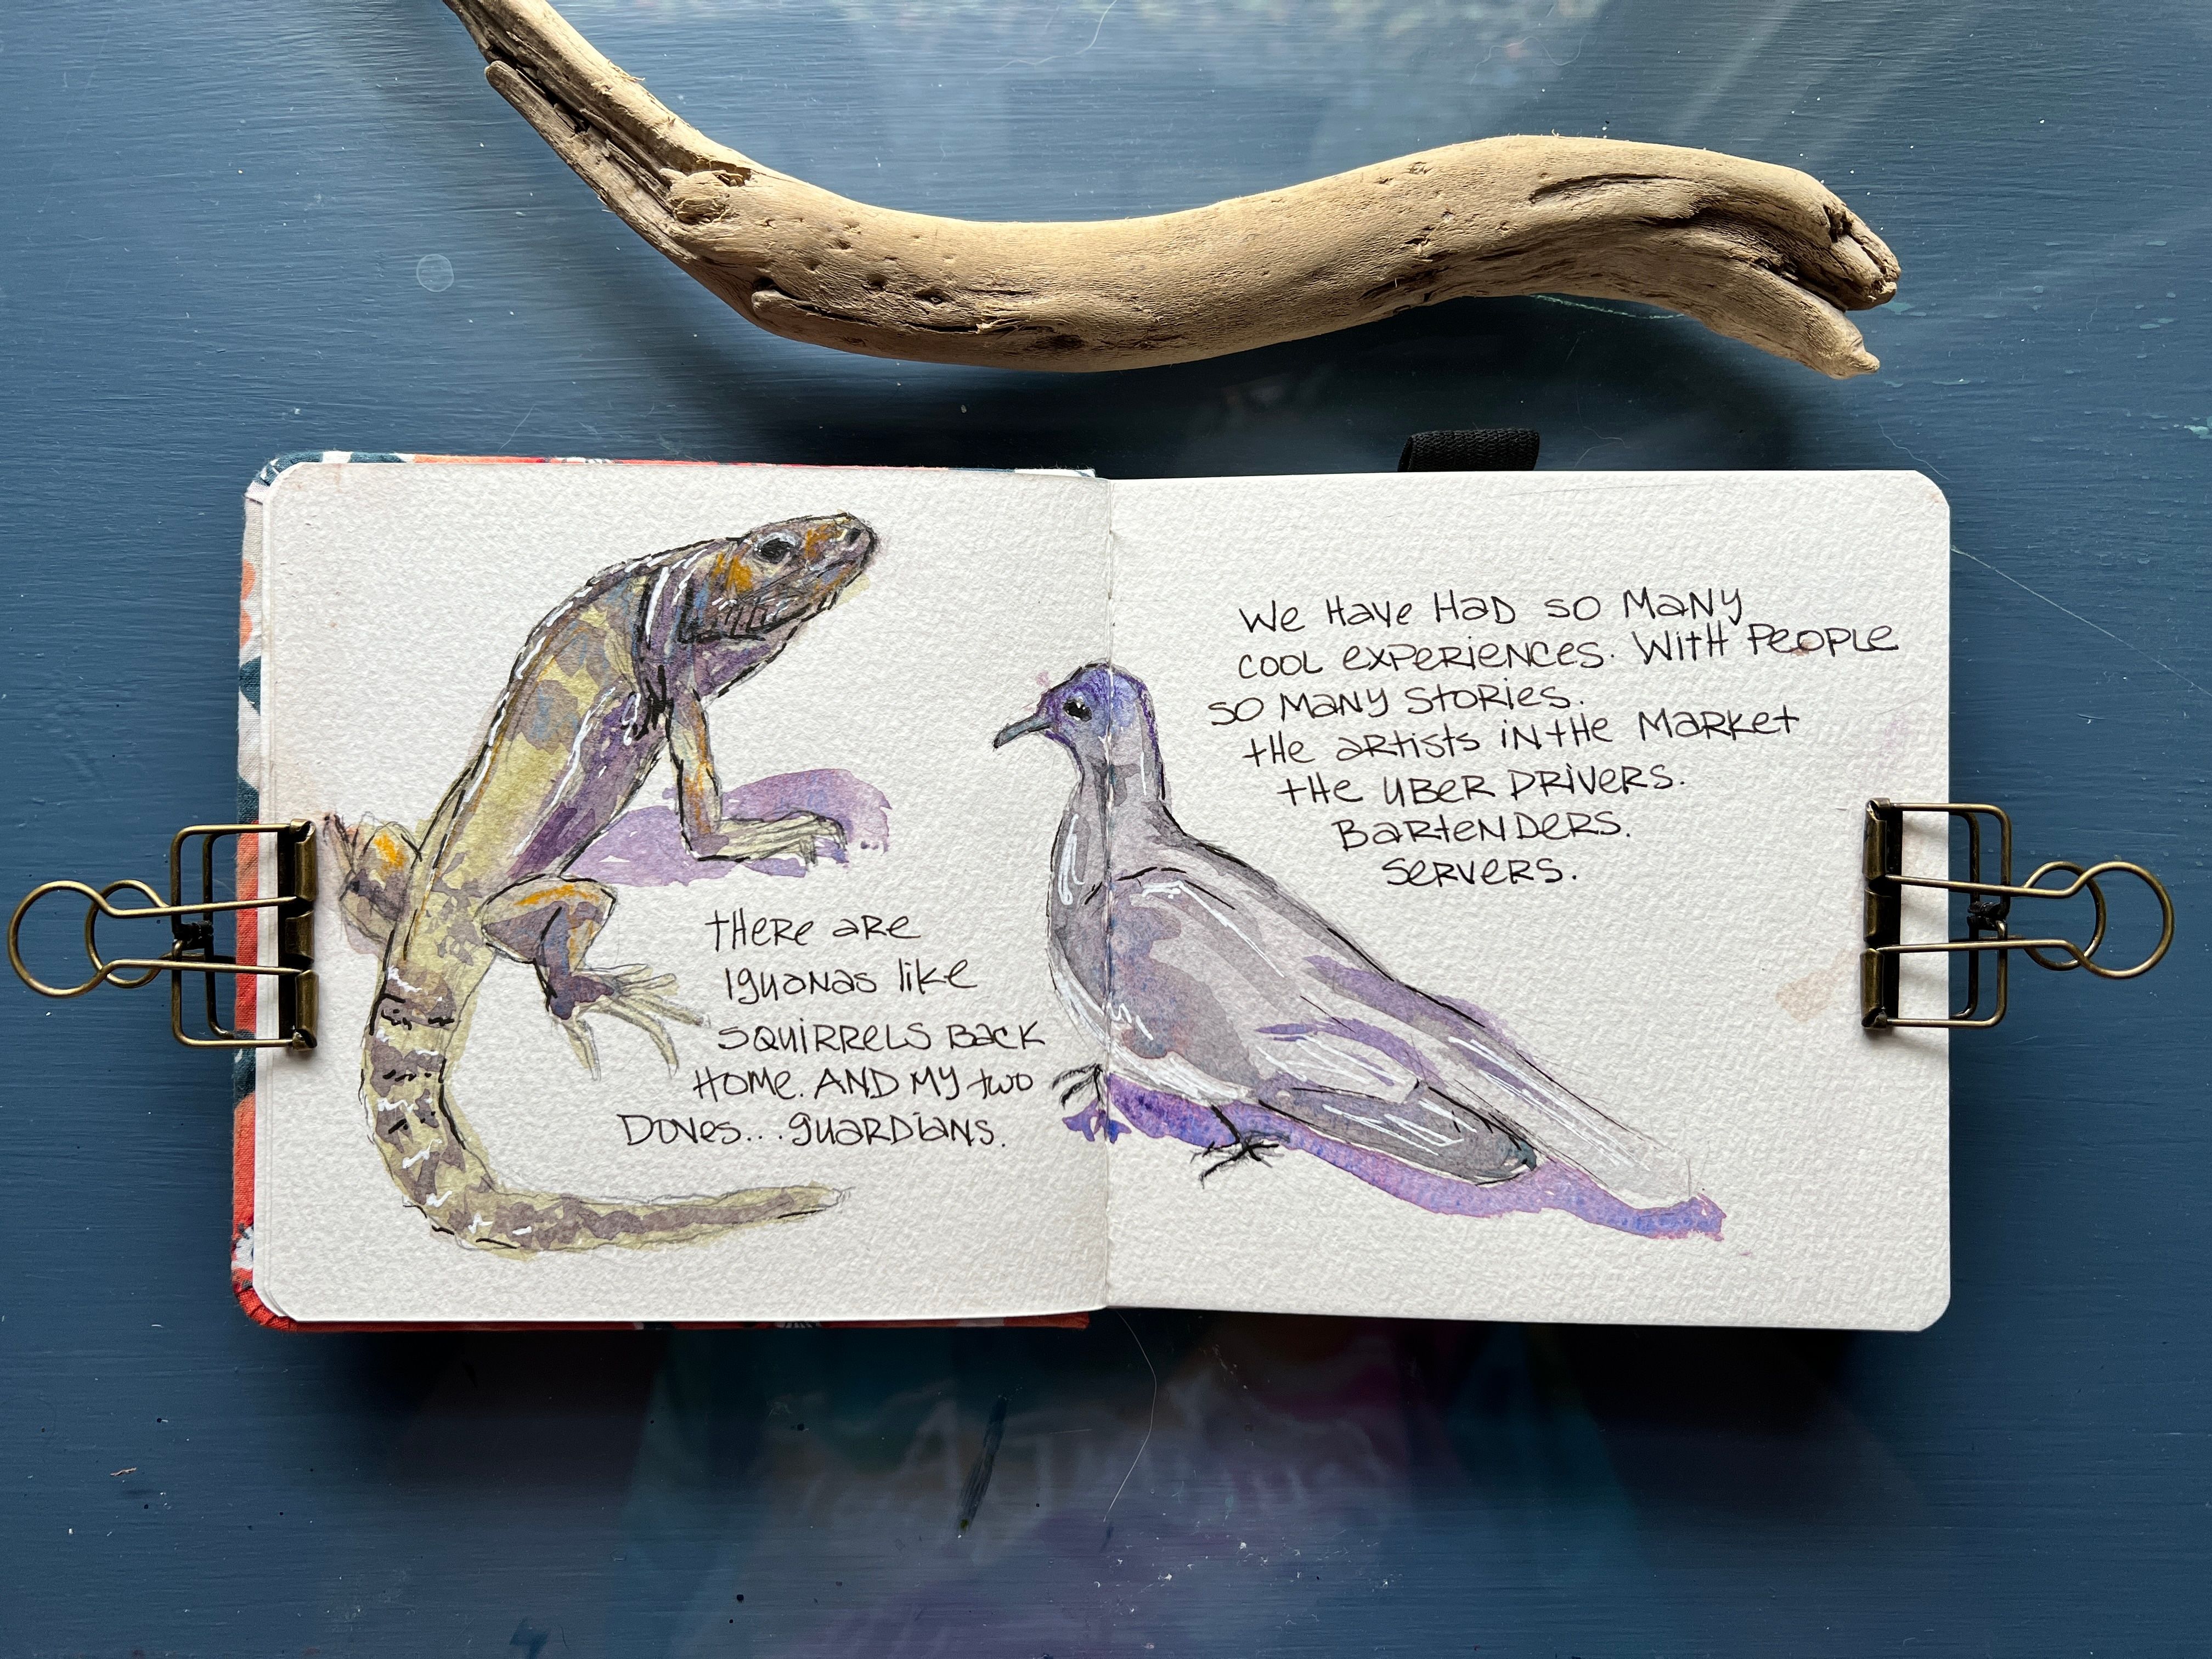 THERE ARE
IGUANAS LIKE
SQUIRRELS BACK
HOME. AND MY TWO
DOVES... GUARDIANS.
WE HAVE HAD SO MANY
COOL EXPERIENCES. WITH PEOPLE
SO MANY STORIES.
THE ARTISTS IN THE MARKET
THE UBER DRIVERS.
BARTENDERS.
SERVERS.